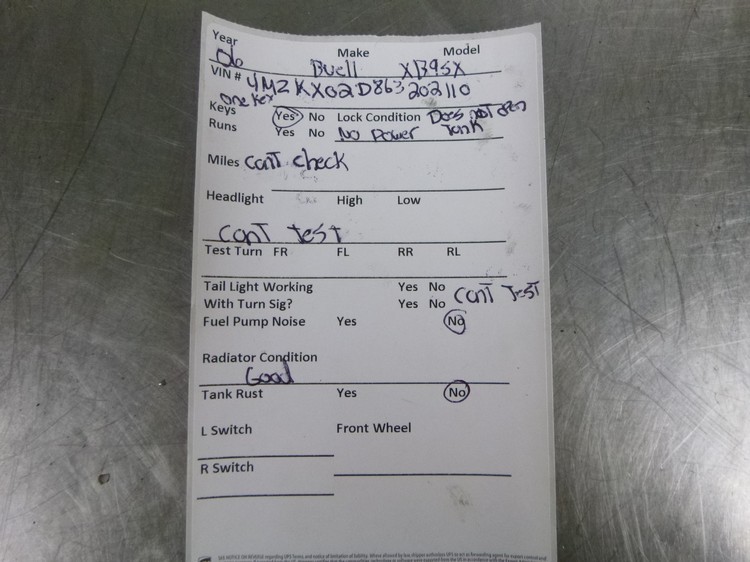 Year Make Model
06 Buell XB9SX
VIN # 4MZKX02D863202110
one key
Keys Yes No Lock Condition Does not open Tank
Runs Yes No No Power
Miles Can't check
Headlight High Low
Can't Test
Test Turn FR FL RR RL
Tail Light Working Yes No
With Turn Sig? Yes No Can't Test
Fuel Pump Noise Yes No
Radiator Condition
Good
Tank Rust Yes No
L Switch Front Wheel
R Switch